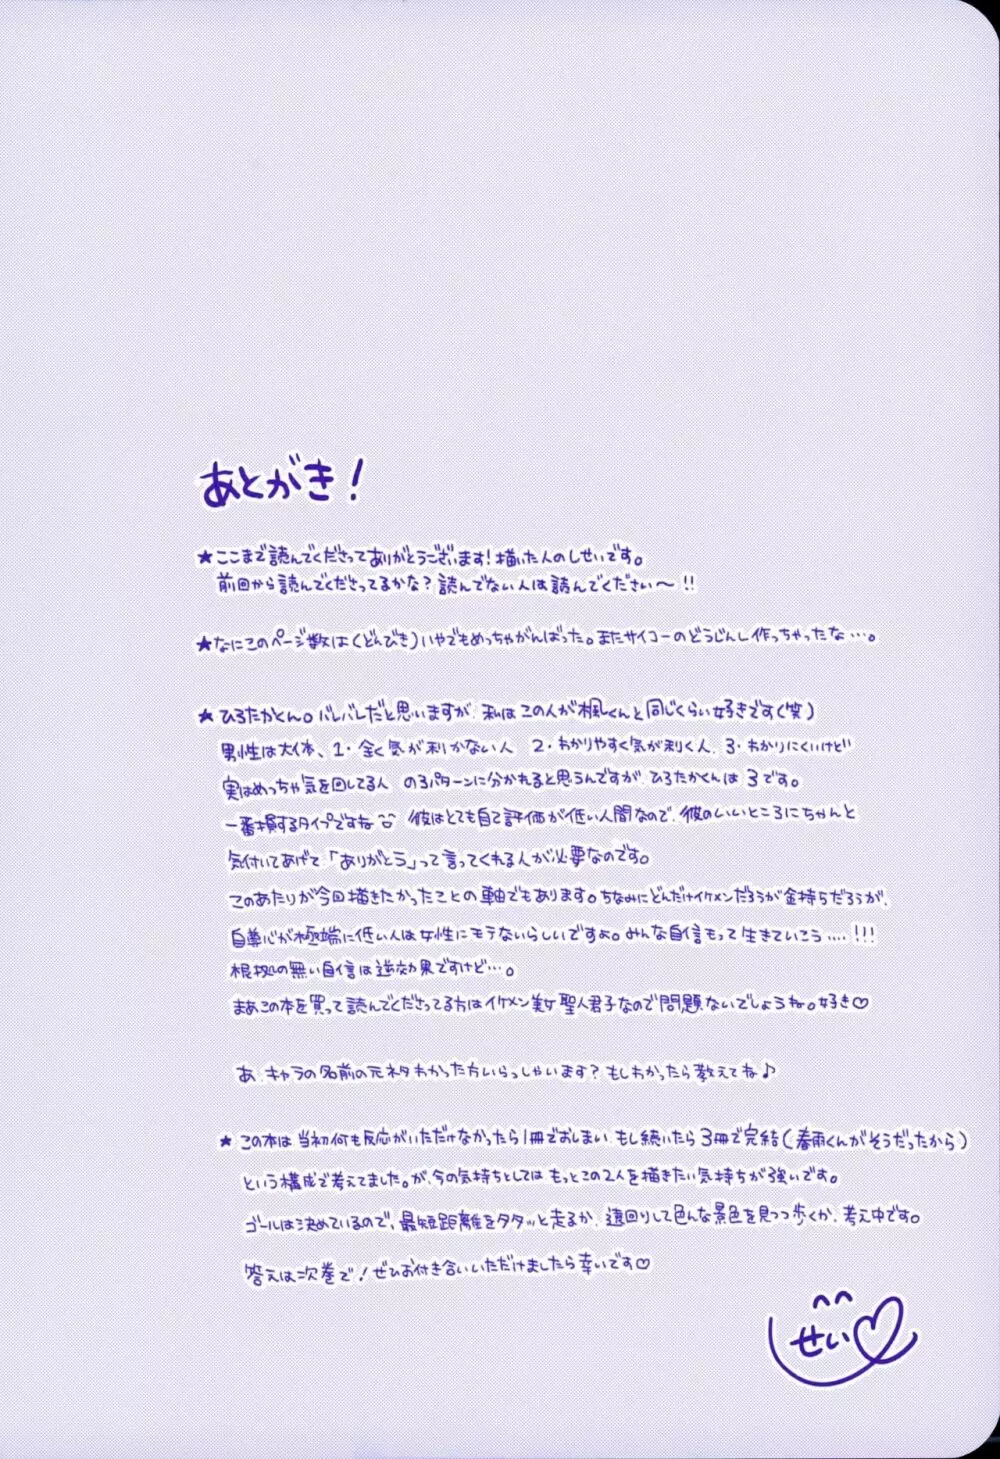 あとがき!
★ここまで読んでくださってありがとうございます!描いた人のしせいです。
前回から読んでくださってるかな?読んでない人は読んでください〜!!
★なにこのページ数は(どんびき)いやでもめっちゃがんばった。またサイコーのどうじんし作っちゃったな…。
★ひろたかくん。バレバレだと思いますが、私はこの人が楓くんと同じくらい好きです(笑)
男性は大体、1・全く気が利かない人 2・わかりやすく気が利く人、3・わかりにくいけど
実はめっちゃ気を回してる人 の3パターンに分かれると思うんですが、ひろたかくんは3です。
一番損するタイプですね 彼はとても自己評価が低い人間なので、彼のいいところにちゃんと
気付いてあげて「ありがとう」って言ってくれる人が必要なのです。
このあたりが今回描きたかったことの軸でもあります。ちなみにどんだけイケメンだろうが金持ちだろうが、
自尊心が極端に低い人は女性にモテないらしいですよ。みんな自信もって生きていこう....!!!
根拠の無い自信は逆効果ですけど…。
まあこの本を買って読んでくださってる方はイケメン美女聖人君子なので問題ないでしょうね。好き♡
あ、キャラの名前の元ネタわかった方いらっしゃいます?もしわかったら教えてね♪
★この本は当初何も反応がいただけなかったら1冊でおしまい、もし続いたら3冊で完結(春雨くんがそうだったから)
という構成で考えてました。が、今の気持ちとしてはもっとこの2人を描きたい気持ちが強いです。
ゴールは決めているので、最短距離をタタッと走るか、遠回りして色んな景色を見つつ歩くか、考え中です。
答えは次巻で!ぜひお付き合いいただけましたら幸いです♡
せい♡